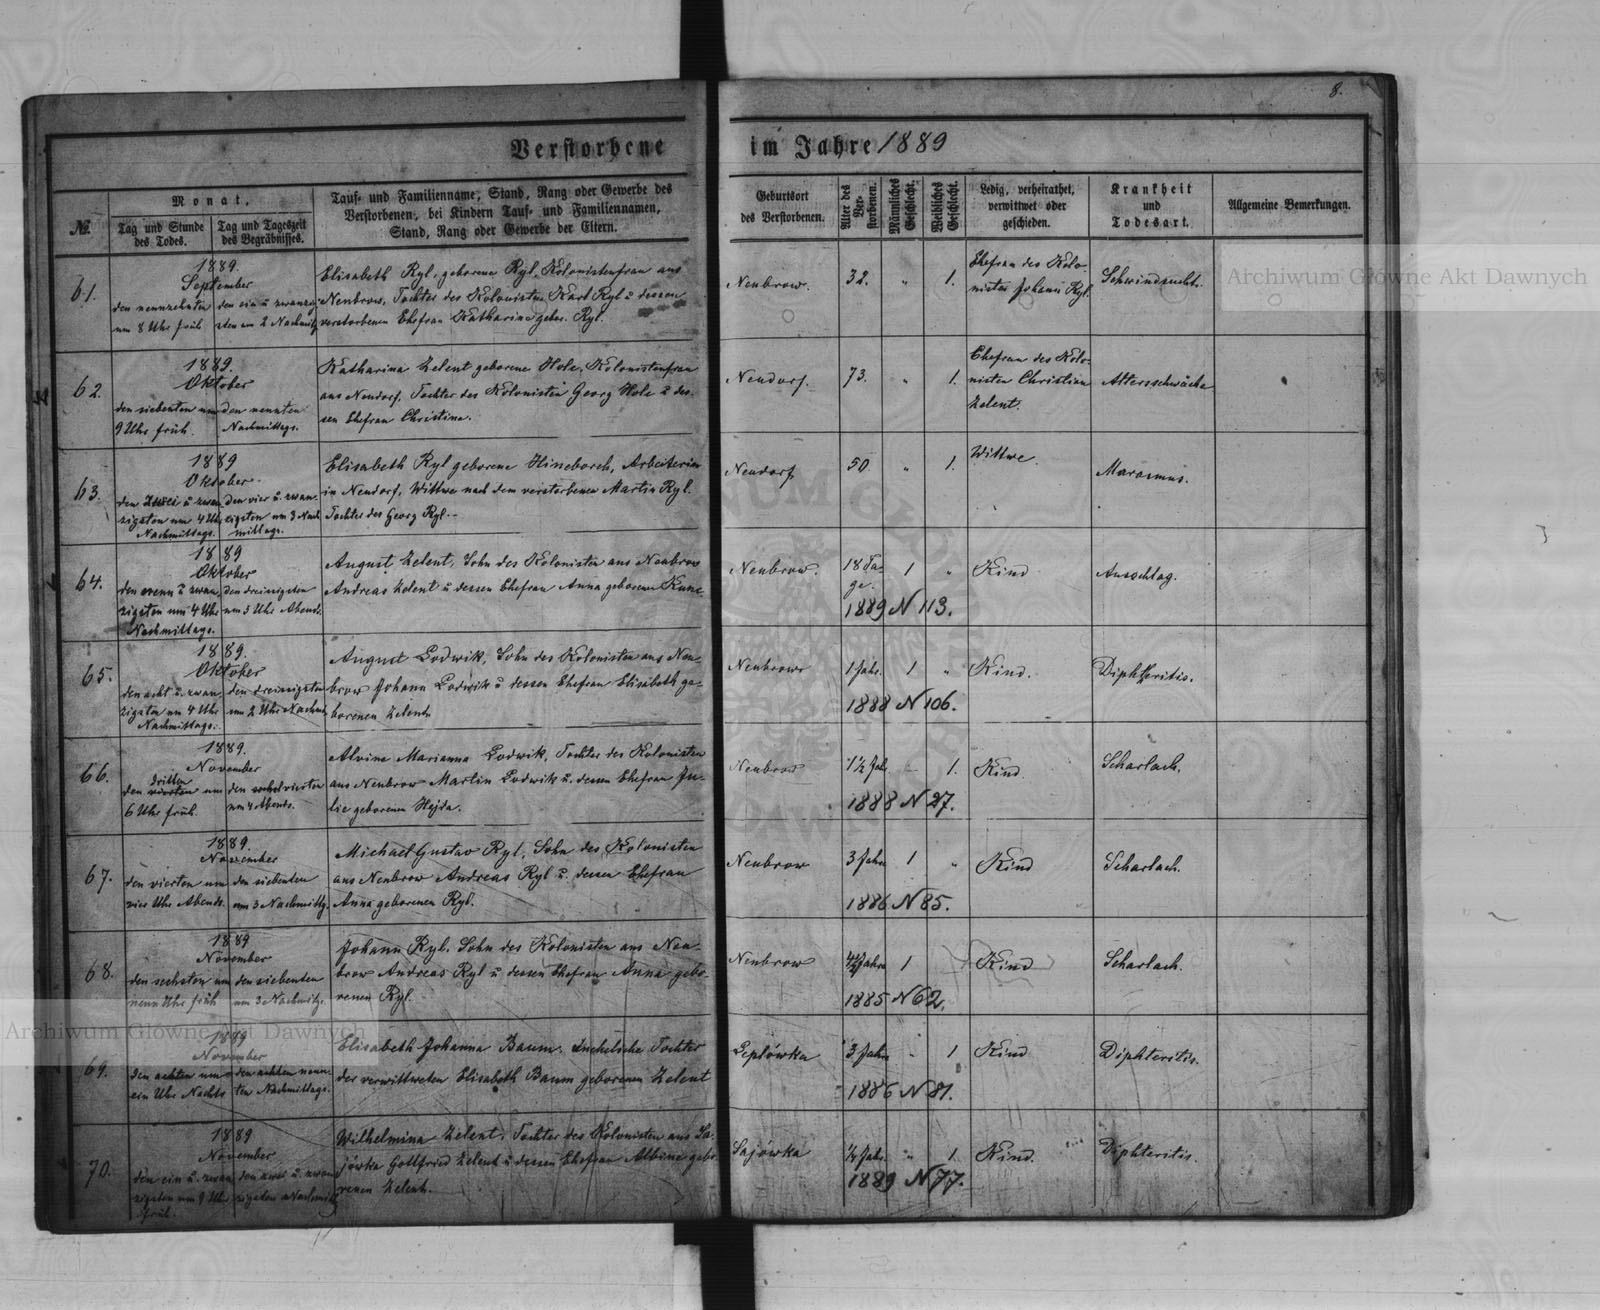 8.
Verstorbene im Jahre 1889
№
Monat.
Tag und Stunde des Todes.
Tag und Tageszeit des Begräbnisses.
Tauf- und Familienname, Stand, Rang oder Gewerbe des
Verstorbenen, bei Kindern Tauf- und Familiennamen,
Stand, Rang oder Gewerbe der Eltern.
Geburtsort
des Verstorbenen.
Alter des Verstorbenen.
Männliches Geschlecht.
Weibliches Geschlecht.
Ledig, verheirathet,
verwittwet oder
geschieden.
Krankheit
und
Todesart.
Allgemeine Bemerkungen.
61.
1889.
September
den neunzehnten
um 8 Uhr früh
den ein u zwanzig
sten um 2 Nachmitg.
Elisabeth Ryl, geborene Ryl, Kolonistenfrau aus
Neubrow, Tochter des Kolonisten Karl Ryl u dessen
verstorbenen Ehefrau Katharina gebor. Ryl.
Neubrow.
32.
"
1.
Ehefrau des Kolo-
nisten Johann Ryl.
Schwindsucht.
62.
1889.
Oktober
den siebenten um
9 Uhr früh.
den neunten
Nachmittags.
Katharina Zelent geborene Hole, Kolonistenfrau
aus Neudorf, Tochter des Kolonisten Georg Hole u des-
sen Ehefrau Christine.
Neudorf.
73.
"
1.
Ehefrau des Kolo-
nisten Christian
Zelent.
Altersschwäche
63.
1889
Oktober
den zwei u zwan
zigsten um 4 Uhr
Nachmittags.
den vier u. zwan-
zigsten um 3 Nach
mittags.
Elisabeth Ryl geborene Hineborch, Arbeiterin
in Neudorf, Wittwe nach dem verstorbenen Martin Ryl.
Tochter des Georg Ryl.
Neudorf
50.
"
1.
Wittwe.
Marasmus.
64.
1889
Oktober
den neun u zwan
zigsten um 4 Uhr
Nachmittags.
den dreissigsten
um 3 Uhr Abend.
August Zelent, Sohn des Kolonisten aus Neubrow
Andreas Zelent u dessen Ehefrau Anna geborene Kunc
Neubrow.
18 Ta-
ge.
1
"
Kind
Ausschlag.
1889 N 113.
65.
1889.
Oktober
den acht u. zwan
zigsten um 4 Uhr
Nachmittags.
den dreissigsten
um 2 Uhr Nachm.
August Lodwik, Sohn des Kolonisten aus Neu-
brow Johann Lodwik u dessen Ehefrau Elisabeth ge-
borenen Zelent
Neubrow
1 Jahr.
1
"
Kind.
Diphtheritis.
1888 N 106.
66.
1889.
November
dritten
den vierten um
6 Uhr früh.
den vierten
um 4 Abends.
Alvine Marianna Lodwik, Tochter des Kolonisten
aus Neubrow Martin Lodwik u. dessen Ehefrau Ju-
lie geborenen Hejda.
Neubrow
1½ Jah.
1.
Kind
Scharlach.
1888 N 27.
67.
1889.
November
den vierten um
vier Uhr Abends.
den siebenten
um 3 Nachmittg.
Michael Gustav Ryl, Sohn des Kolonisten
aus Neubrow Andreas Ryl u. dessen Ehefrau
Anna geborenen Ryl.
Neubrow
3 Jahr
1
"
Kind
Scharlach.
1886 N 85.
68.
1889
November
den sechsten um
neun Uhr früh
den siebenten
um 3 Nachmittg.
Johann Ryl, Sohn des Kolonisten aus Neu-
brow Andreas Ryl u dessen Ehefrau Anna gebo-
renen Ryl.
Neubrow
Jahre
1
Kind
Scharlach.
1885 N 62.
69.
1889
November
den achten um
ein Uhr Nachts
den achten neun-
ten Nachmittags.
Elisabeth Johanna Baum, Tochter
der verwittweten Elisabeth Baum geborenen Zelent
Leplówka
3 Jahr
"
1
Kind
Diphteritis.
1886 N 81.
70.
1889
November
den ein u. zwan
zigsten um 9 Uhr
früh.
den zwei u. zwan
zigsten Nachmitt.
Wilhelmina Zelent, Tochter des Kolonisten aus Sa-
jówka Gottfried Zelent u dessen Ehefrau Albine gebo-
renen Zelent.
Sajówka
¼ Jahr.
"
1.
Kind.
Diphteritis.
1889 N 77.
Archiwum Główne Akt Dawnych
Archiwum Główne Akt Dawnych